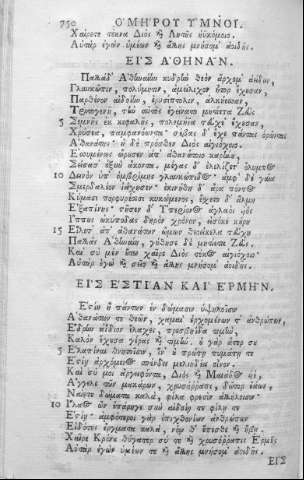 750 ὉΜΗΡΟΥ ὝΜΝΟΙ.
Χαίρετε τέκνα Διὸς καὶ Λητοῦς ἠϋκόμοιο.
Αὐτὰρ ἐγὼν ὑμέων καὶ ἄλλης μνήσομ' ἀοιδῆς.
ΕἸΣ ἈΘΗΝΑΝ.
Παλλάδ' Ἀθηναίην κυδρὴν θεὸν ἄρχομ' ἀείδειν,
Γλαυκῶπιν, πολύμητιν, ἀμείλιχον ἦτορ ἔχουσαν,
Παρθένον αἰδοίην, ἐρυσίπτολιν, ἀλκήεσσαν,
Τριτογενῆ, τὴν αὐτὸς ἐγείνατο μητίετα Ζεὺς
5 Σεμνῆς ἐκ κεφαλῆς, πολεμήϊα τεύχε' ἔχουσαν,
Χρύσεα, παμφανόωντα· σέβας δ' ἔχε πάντας ὁρῶντας
Ἀθανάτους· ἡ δὲ πρόσθεν Διὸς αἰγιόχοιο
Ἐσσυμένως ὤρουσεν ἀπ' ἀθανάτοιο καρήνου,
Σείσασ' ὀξὺν ἄκοντα, μέγας δ' ἐλελίζετ' ὄλυμπος
10 Δεινὸν ὑπ' ὀμβρίμης γλαυκώπιδος· ἀμφὶ δὲ γαῖα
Σμερδαλέον ἰάχησεν· ἐκινήθη δ' ἄρα πόντος
Κύμασι πορφυρέοισι κυκώμενος, ἔχετο δ' ἅλμη
Ἐξαπίνης· στῆσεν δ' Ὑπερίονος ἀγλαὸς υἱὸς
Ἵππους ὠκύποδας δηρὸν χρόνον, εἰσότε κούρη
15 Εἵλετ' ἀπ' ἀθανάτων ὤμων θεοείκελα τεύχη
Παλλὰς Ἀθηναίη, γήθησε δὲ μητίετα Ζεύς.
Καὶ σὺ μὲν οὕτω χαῖρε Διὸς τέκος αἰγιόχοιο·
Αὐτὰρ ἐγὼ καὶ σεῖο καὶ ἄλλης μνήσομ' ἀοιδῆς.
ΕἸΣ ἙΣΤΙΑΝ ΚΑῚ ἙΡΜΗΝ.
Ἑστίη ἣ πάντων ἐν δώμασιν ὑψηλοῖσιν
Ἀθανάτων τε θεῶν, χαμαὶ ἐρχομένων τ' ἀνθρώπων,
Ἕδρην ἀΐδιον ἔλαχες, πρεσβηΐδα τιμὴν,
Καλὸν ἔχουσα γέρας καὶ τιμήν. οὐ γὰρ ἄτερ σου
5 Εἰλαπίναι θνητοῖσιν, ἵν' οὐ πρώτῃ πυμάτῃ τε
Ἑστίῃ ἀρχόμενος σπένδει μελιηδέα οἶνον.
Καὶ σύ μοι ἀργειφόντα, Διὸς καὶ Μαιάδος υἱὲ,
Ἄγγελε τῶν μακάρων, χρυσόρραπι, δῶτορ ἐάων,
Ναίετε δώματα καλὰ, φίλα φρεσὶν ἀλλήλοισιν·
10 Ἵλαος ὢν ἐπάρηγε σὺν αἰδοίῃ τε φίλῃ τε
Ἑστίῃ· ἀμφότεροι γὰρ ἐπιχθονίων ἀνθρώπων
Εἰδότες ἔργματα καλὰ, νόῳ δ' ἕσπεσθε καὶ ἥβῃ.
Χαῖρε Κρόνου θύγατερ σύ τε καὶ χρυσόρραπις Ἑρμῆς
Αὐτὰρ ἐγὼν ὑμέων τε καὶ ἄλλης μνήσομ' ἀοιδῆς.
ΕἸΣ